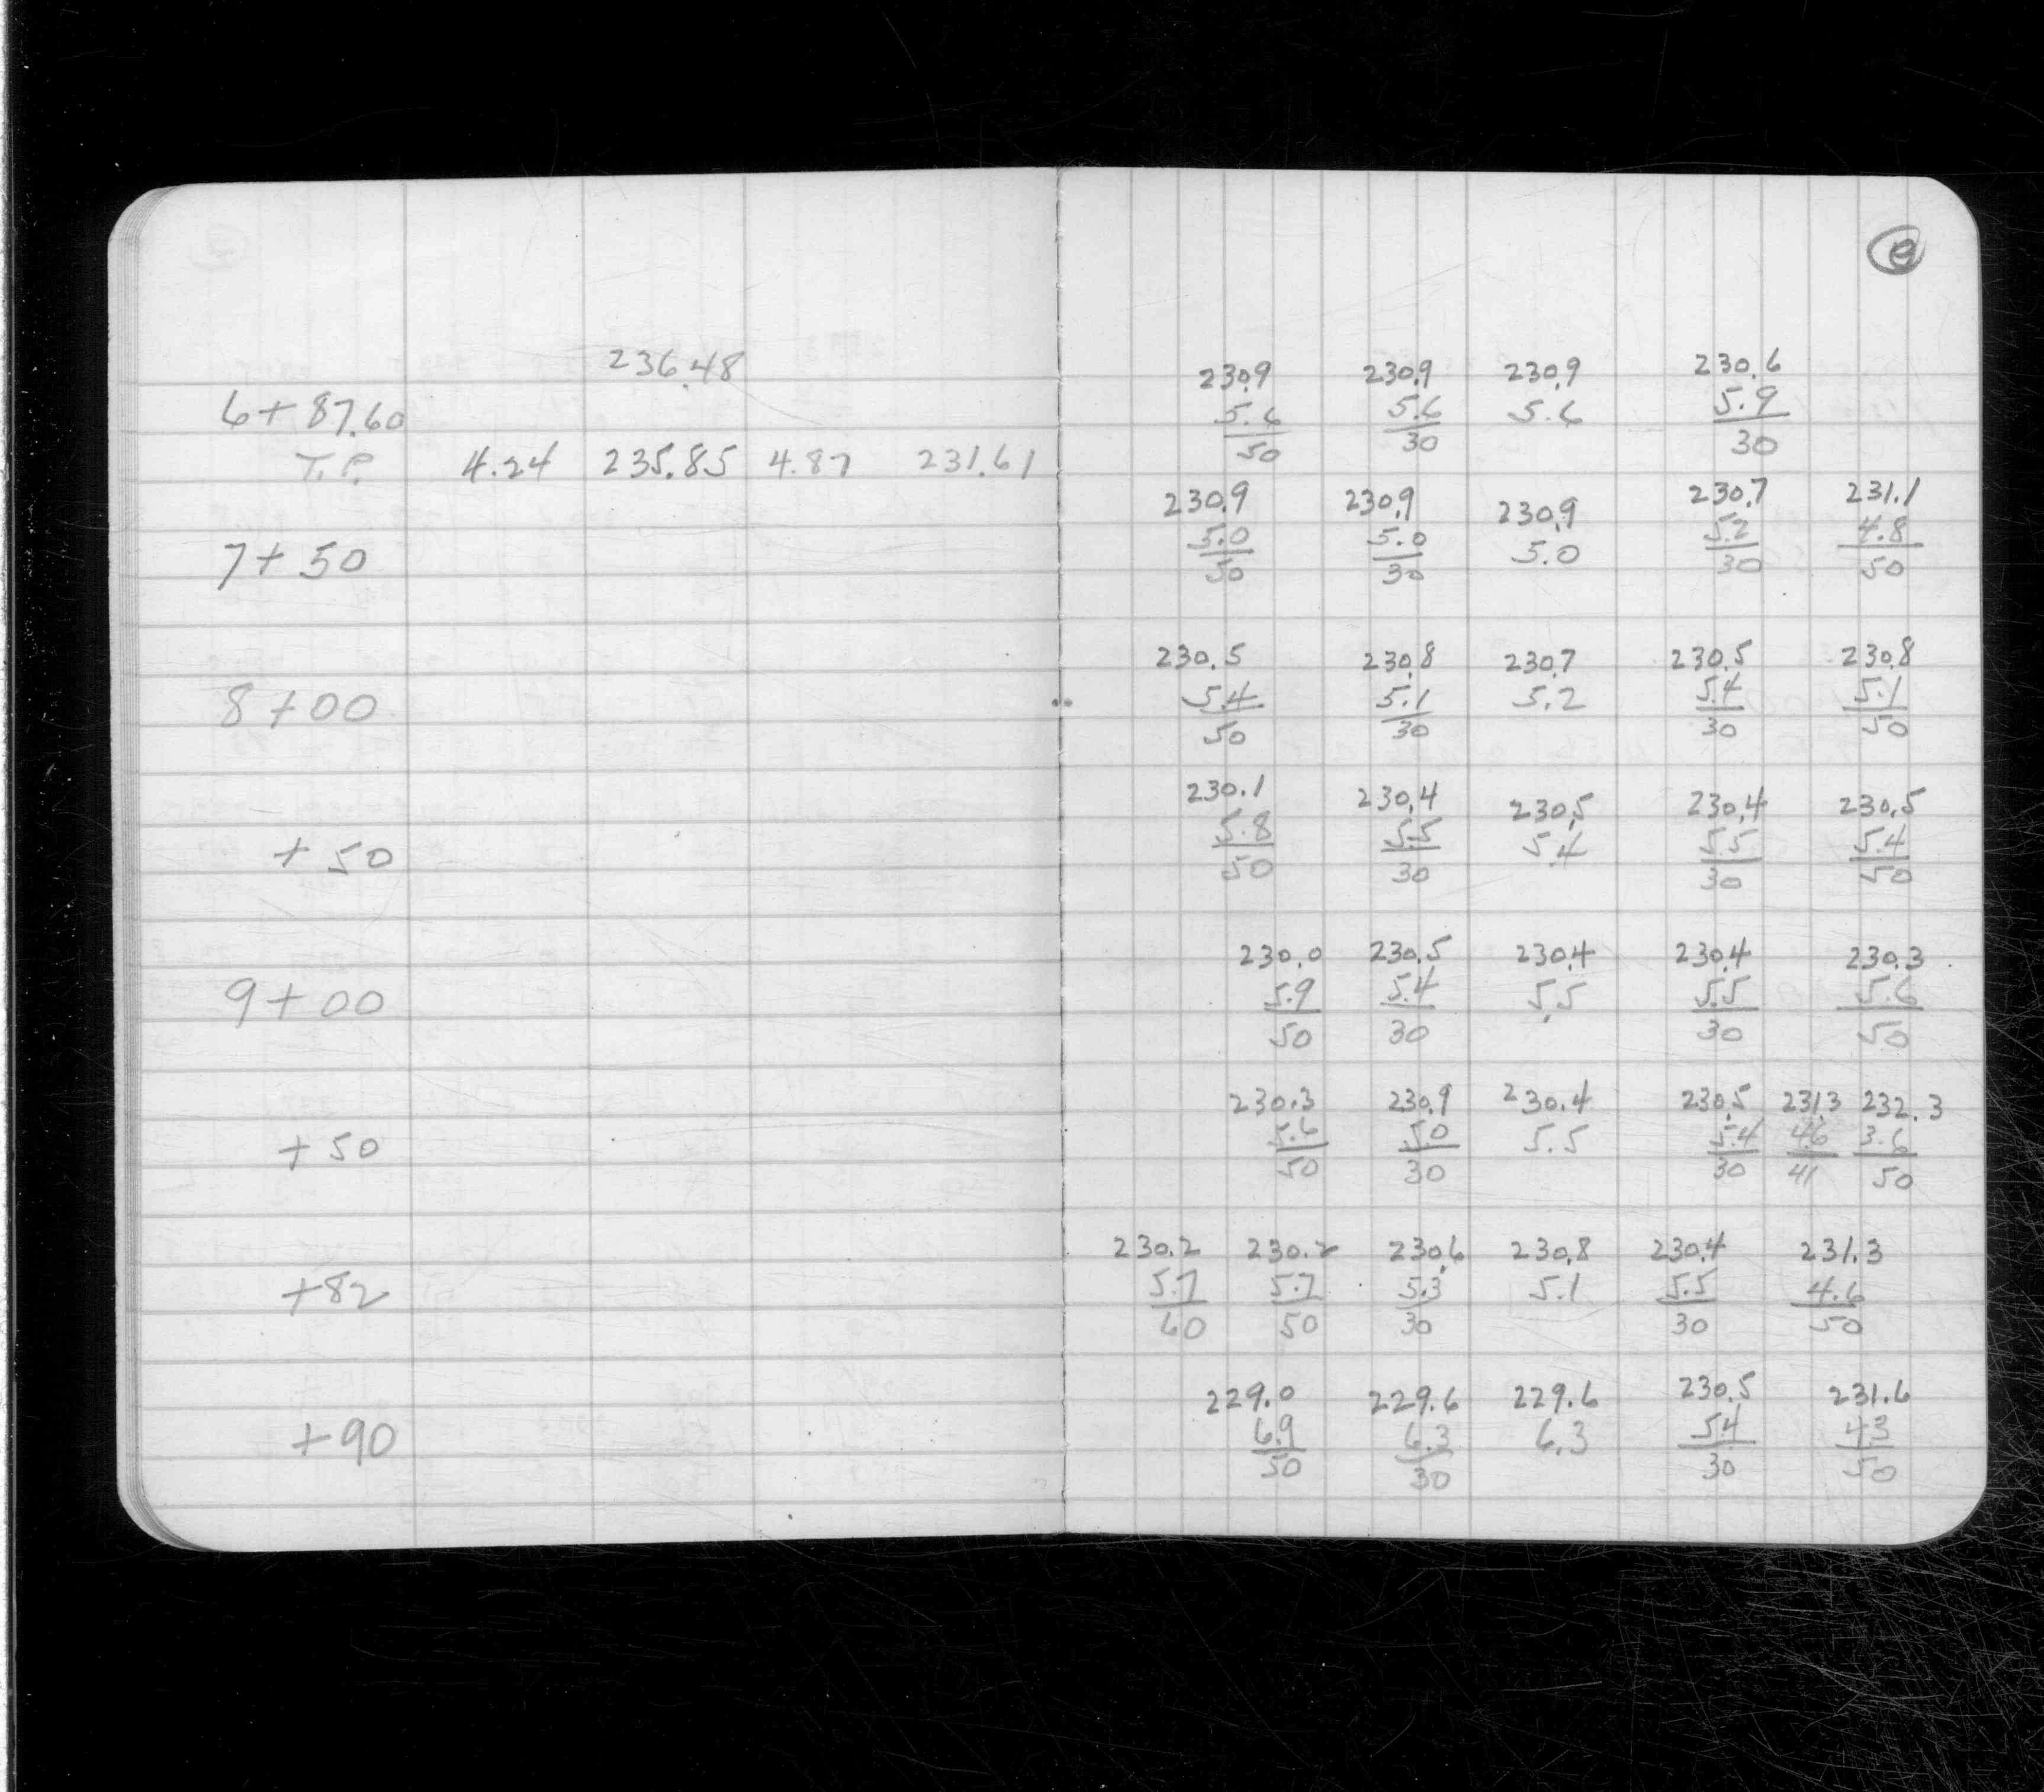 236.48
6+87.60
T.P. 4.24 235.85 4.87 231.61
7+50
8+00
+50
9+00
+50
+82
+90
230.9 230.9 230.9 230.6
5.6 5.6 5.6 5.9
50 30 30
230.9 230.9 230.9 230.7 231.1
5.0 5.0 5.0 5.2 4.8
50 30 30 50
230.5 230.8 230.7 230.5 230.8
5.4 5.1 5.2 5.4 5.1
50 30 30 50
230.1 230.4 230.5 230.4 230.5
5.8 5.5 5.4 5.5 5.4
50 30 30 50
230.0 230.5 230.4 230.4 230.3
5.9 5.4 5.5 5.5 5.6
50 30 30 50
230.3 230.9 230.4 230.5 231.3 232.3
5.6 5.0 5.5 5.4 4.6 3.6
50 30 30 41 50
230.2 230.2 230.6 230.8 230.4 231.3
5.7 5.7 5.3 5.1 5.5 4.6
60 50 30 30 50
229.0 229.6 229.6 230.5 231.6
6.9 6.3 6.3 5.4 4.3
50 30 30 50